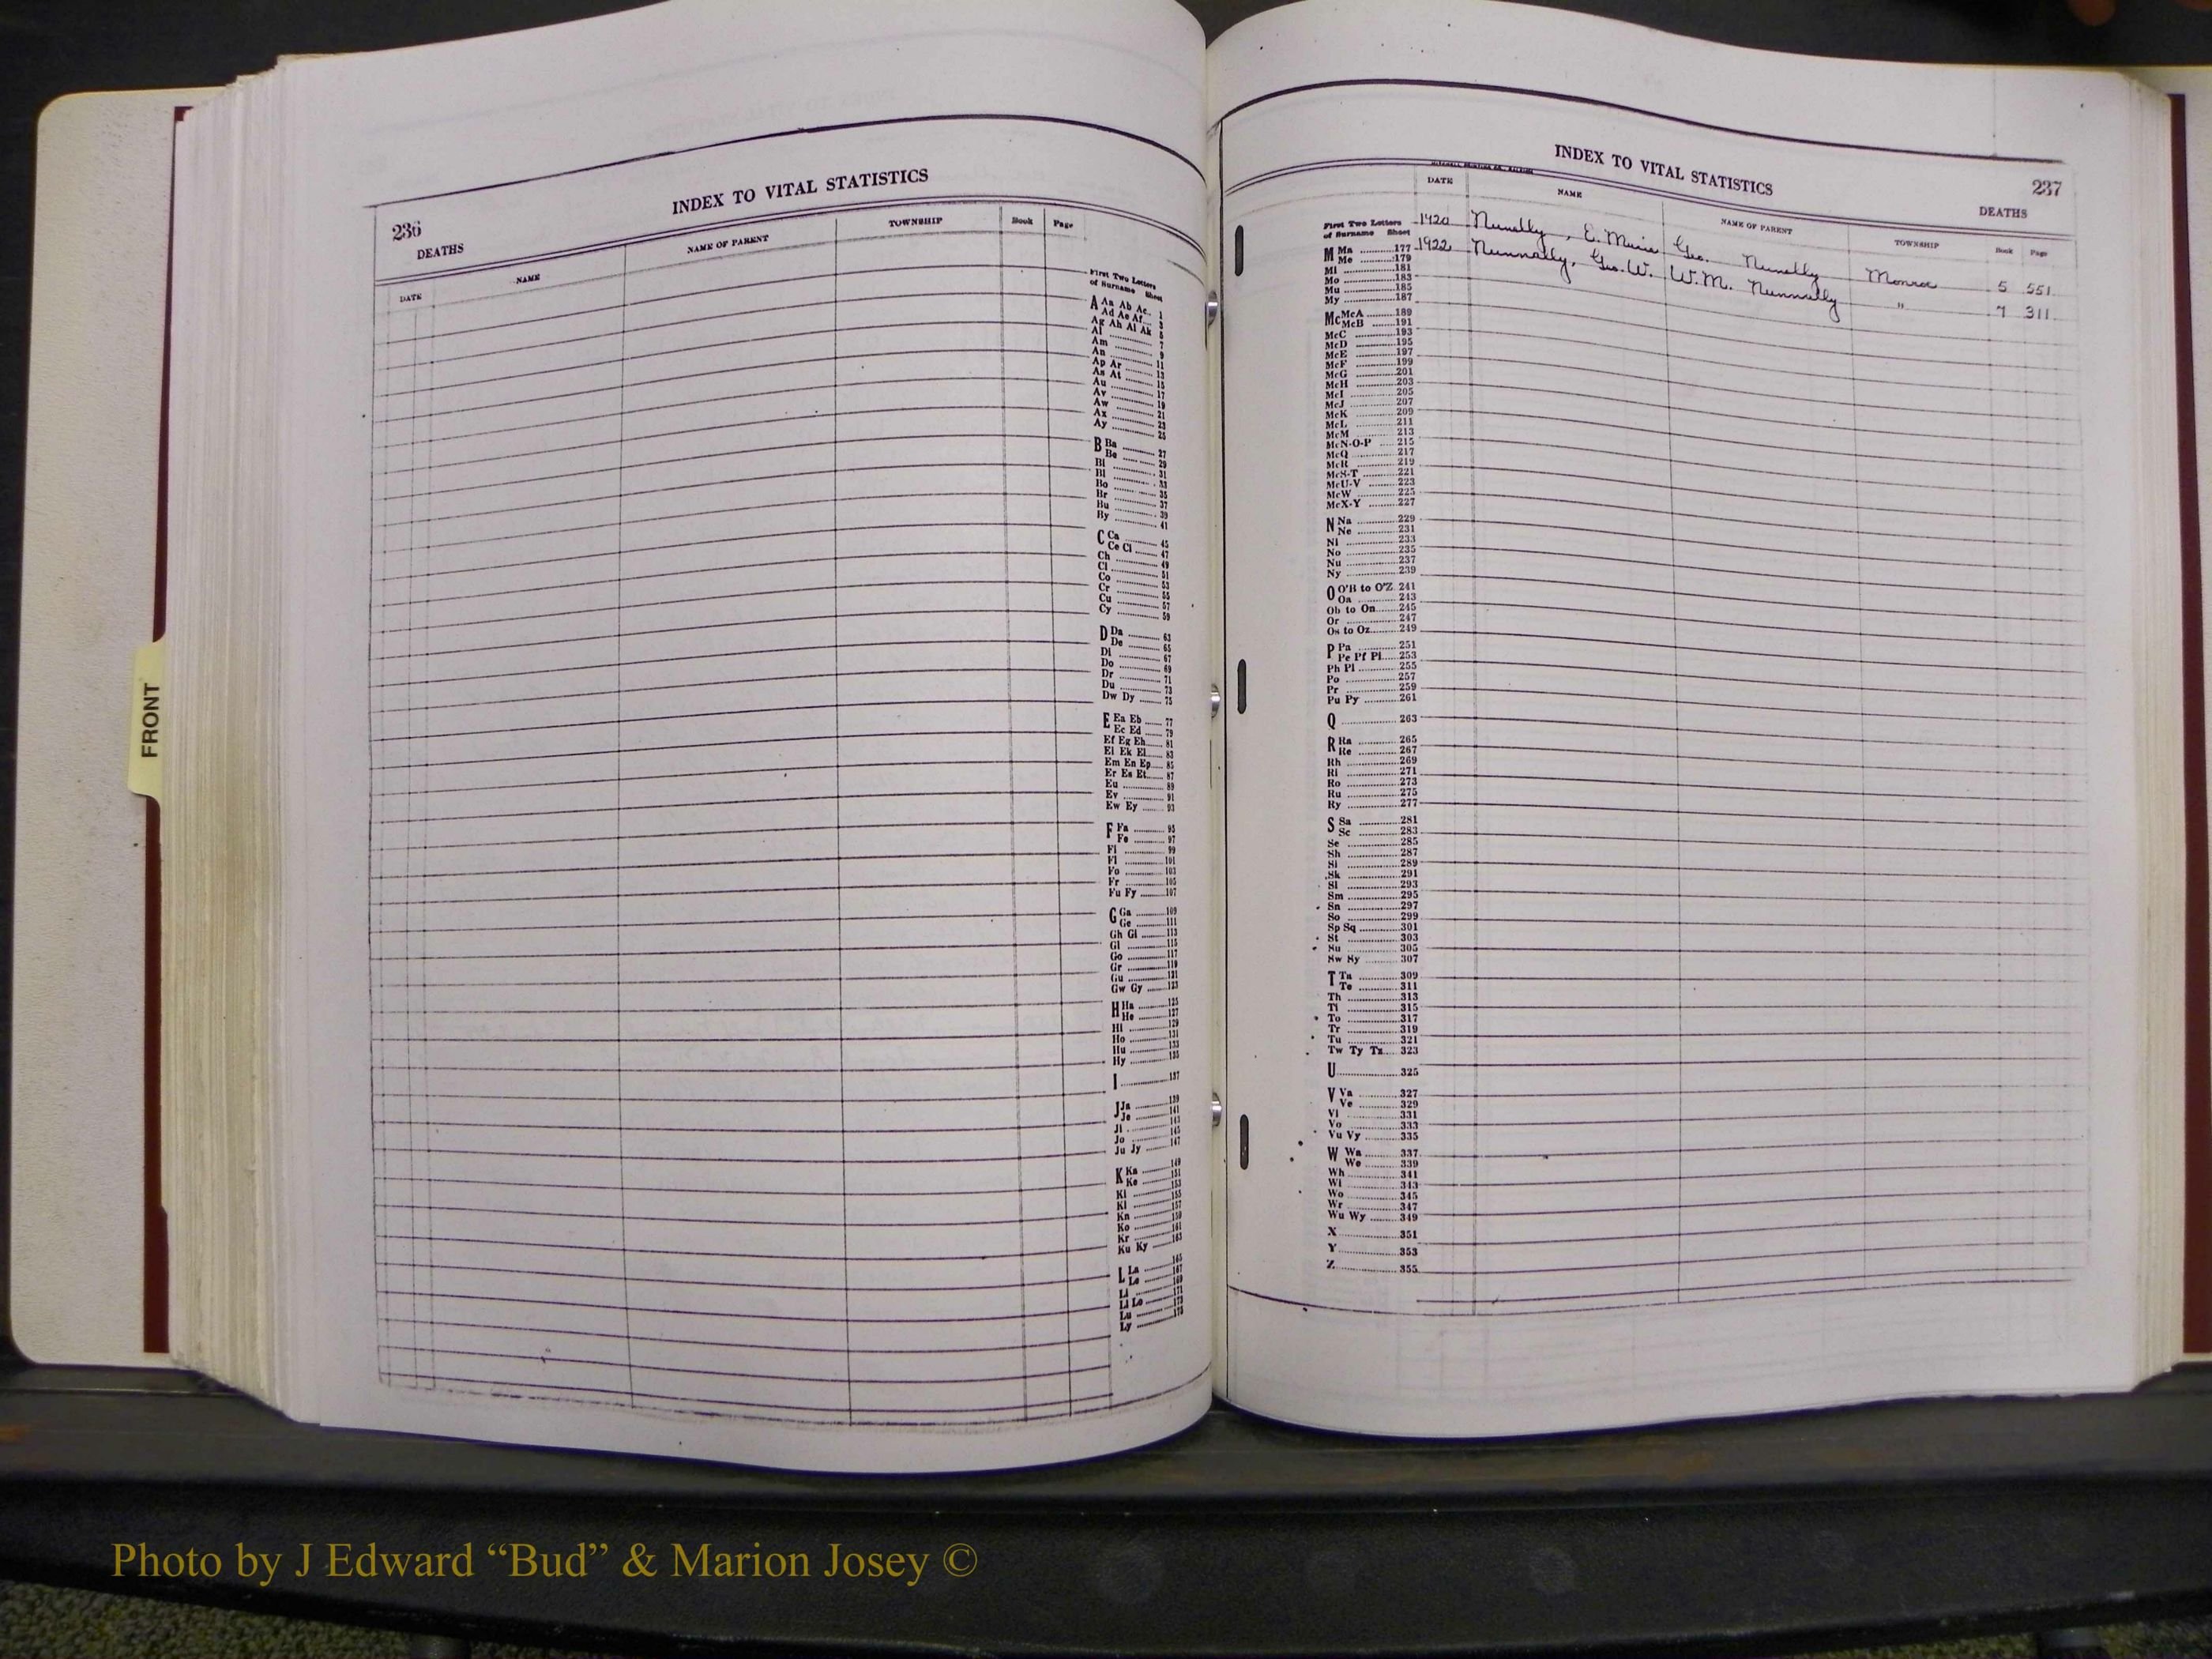 INDEX TO VITAL STATISTICS
236
DEATHS
DATE NAME NAME OF PARENT TOWNSHIP Book Page
First Two Letters
of Surname Sheet
A Aa Ab Ac 1
Ad Ae Af 3
Ag Ah Ai Ak 5
Al 7
Am 9
An 11
Ap Ar 13
As At 15
Au 17
Av 19
Aw 21
Ax 23
Ay 25
B Ba 27
Be 29
Bi 31
Bl 33
Bo 35
Br 37
Bu 39
By 41
C Ca 45
Ce Ci 47
Ch 49
Cl 51
Co 53
Cr 55
Cu 57
Cy 59
D Da 63
De 65
Di 67
Do 69
Dr 71
Du 73
Dw Dy 75
E Ea Eb 77
Ec Ed 79
Ef Eg Eh 81
Ei Ek El 83
Em En Ep 85
Er Es Et 87
Eu 89
Ev 91
Ew Ey 93
F Fa 95
Fe 97
Fi 99
Fl 101
Fo 103
Fr 105
Fu Fy 107
G Ga 109
Ge 111
Gh Gi 113
Gl 115
Go 117
Gr 119
Gu 121
Gw Gy 123
H Ha 125
He 127
Hi 129
Ho 131
Hu 133
Hy 135
I 137
J Ja 139
Je 141
Ji 143
Jo 145
Ju Jy 147
K Ka 149
Ke 151
Ki 153
Kl 155
Kn 157
Ko 159
Kr 161
Ku Ky 163
L La 165
Le 167
Li 169
Ll Lo 171
Lu 173
Ly 175
INDEX TO VITAL STATISTICS
237
DEATHS
DATE NAME NAME OF PARENT TOWNSHIP Book Page
1920 Nunally, E. Marie Geo. Nunally Monroe 5 551
1922 Nunnally, Geo. W. W. M. Nunnally " 7 311
First Two Letters
of Surname Sheet
M Ma 177
Me 179
Mi 181
Mo 183
Mu 185
My 187
Mc McA 189
McB 191
McC 193
McD 195
McE 197
McF 199
McG 201
McH 203
McI 205
McJ 207
McK 209
McL 211
McM 213
McN-O-P 215
McQ 217
McR 219
McS-T 221
McU-V 223
McW 225
McX-Y 227
N Na 229
Ne 231
Ni 233
No 235
Nu 237
Ny 239
O O'B to O'Z 241
Oa 243
Ob to On 245
Or 247
Os to Oz 249
P Pa 251
Pe Pf Pi 253
Ph Pl 255
Po 257
Pr 259
Pu Py 261
Q 263
R Ra 265
Re 267
Rh 269
Ri 271
Ro 273
Ru 275
Ry 277
S Sa 281
Sc 283
Se 285
Sh 287
Si 289
Sk 291
Sl 293
Sm 295
Sn 297
So 299
Sp Sq 301
St 303
Su 305
Sw Sy 307
T Ta 309
Te 311
Th 313
Ti 315
To 317
Tr 319
Tu 321
Tw Ty Tz 323
U 325
V Va 327
Ve 329
Vi 331
Vo 333
Vu Vy 335
W Wa 337
We 339
Wh 341
Wi 343
Wo 345
Wr 347
Wu Wy 349
X 351
Y 353
Z 355
FRONT
Photo by J Edward “Bud” & Marion Josey ©